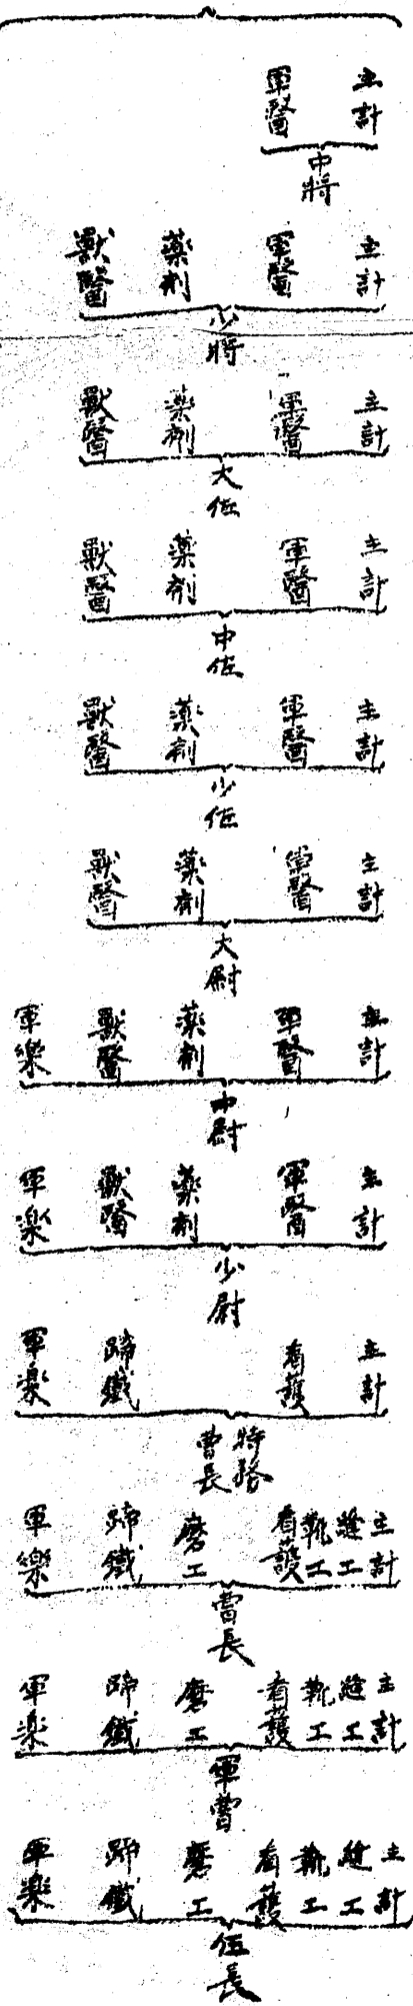 主計 軍醫
中將
主計 軍醫 薬剤 獸醫
少將
主計 軍醫 薬剤 獸醫
大佐
主計 軍醫 薬剤 獸醫
中佐
主計 軍醫 薬剤 獸醫
少佐
主計 軍醫 薬剤 獸醫
大尉
主計 軍醫 薬剤 獸醫 軍樂
中尉
主計 軍醫 薬剤 獸醫 軍楽
少尉
主計 看護 蹄鐵 軍楽
特務曹長
主計 縫工 靴工 看護 磨工 蹄鐵 軍樂
曹長
主計 縫工 靴工 看護 磨工 蹄鐵 軍楽
軍曹
主計 縫工 靴工 看護 磨工 蹄鐵 軍楽
伍長